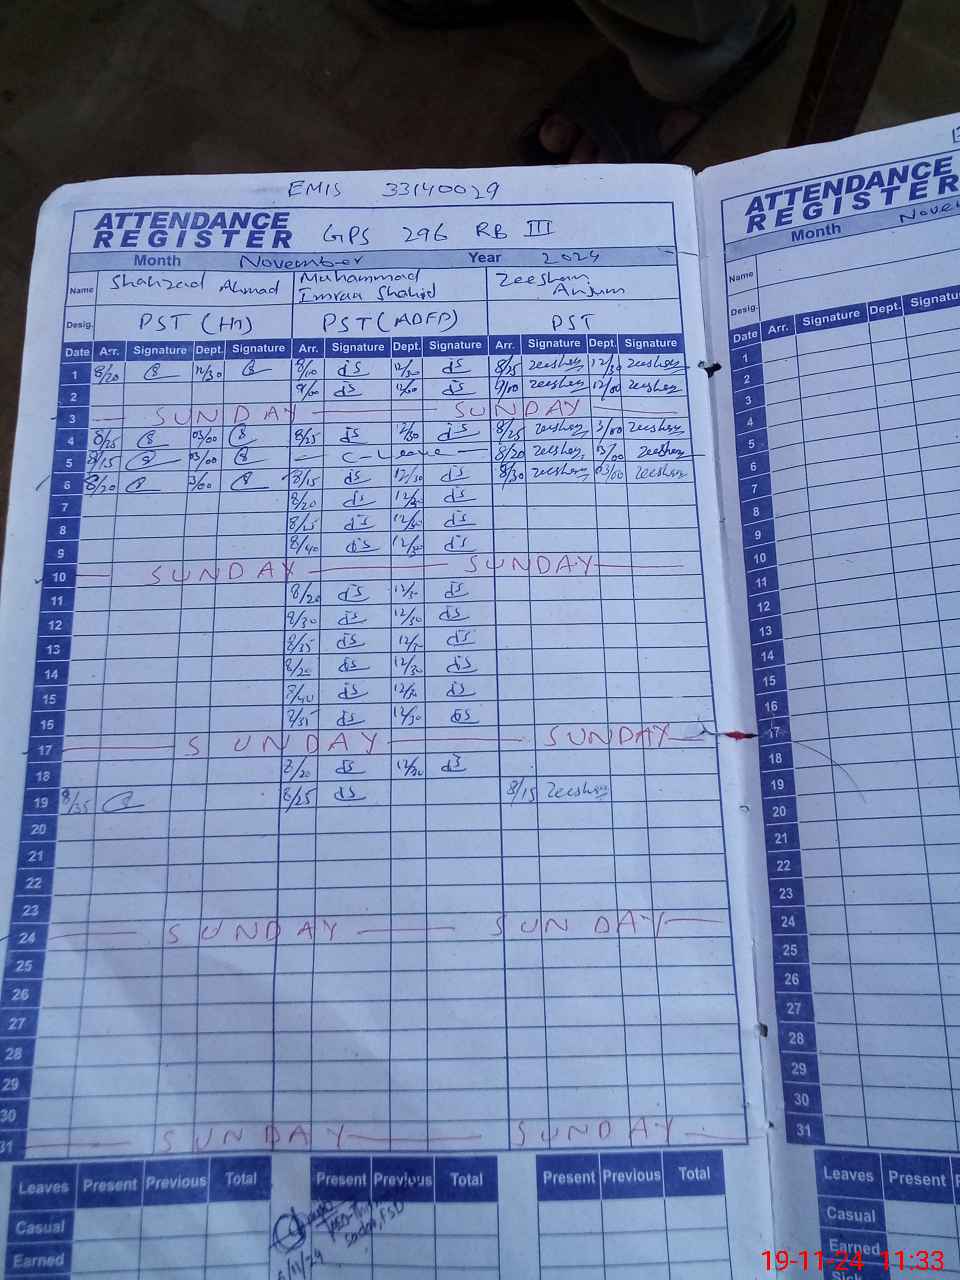 EMIS 33140029
ATTENDANCE
REGISTER GPS 296 RB III
Month November Year 2024
Name Shahzad Ahmad Muhammad Imran Shahid Zeeshan Anjum
Desig. PST (HT) PST (ADFP) PST
Date Arr. Signature Dept. Signature Arr. Signature Dept. Signature Arr. Signature Dept. Signature
1 8/20 12/30 8/10 12/30 8/25 zeeshan 12/30 zeeshan
2 9/00 12/00 9/00 zeeshan 12/00 zeeshan
3 SUNDAY SUNDAY
4 8/25 03/00 8/25 12/30 8/25 zeeshan 3/00 zeeshan
5 8/15 03/00 C-Leave 8/20 zeeshan 03/00 zeeshan
6 8/20 3/00 8/15 12/30 8/30 zeeshan 03/00 zeeshan
7 8/20 12/30
8 8/25 12/30
9 8/40 12/30
10 SUNDAY SUNDAY
11 8/20 12/30
12 8/30 12/30
13 8/35 12/30
14 8/20 12/30
15 12/30
16 12/30
17 SUNDAY SUNDAY
18 12/30
19 8/35 8/25 8/15 Zeeshan
20
21
22
23
24 SUNDAY SUNDAY
25
26
27
28
29
30
31 SUNDAY SUNDAY
Leaves Present Previous Total Present Previous Total Present Previous Total
Casual
Earned
ATTENDANCE
REGISTER
Month
Name
Desig.
Date Arr. Signature Dept.
1
2
3
4
5
6
7
8
9
10
11
12
13
14
15
16
17
18
19
20
21
22
23
24
25
26
27
28
29
30
31
Leaves Present
Casual
Earned
19-11-24 11:33